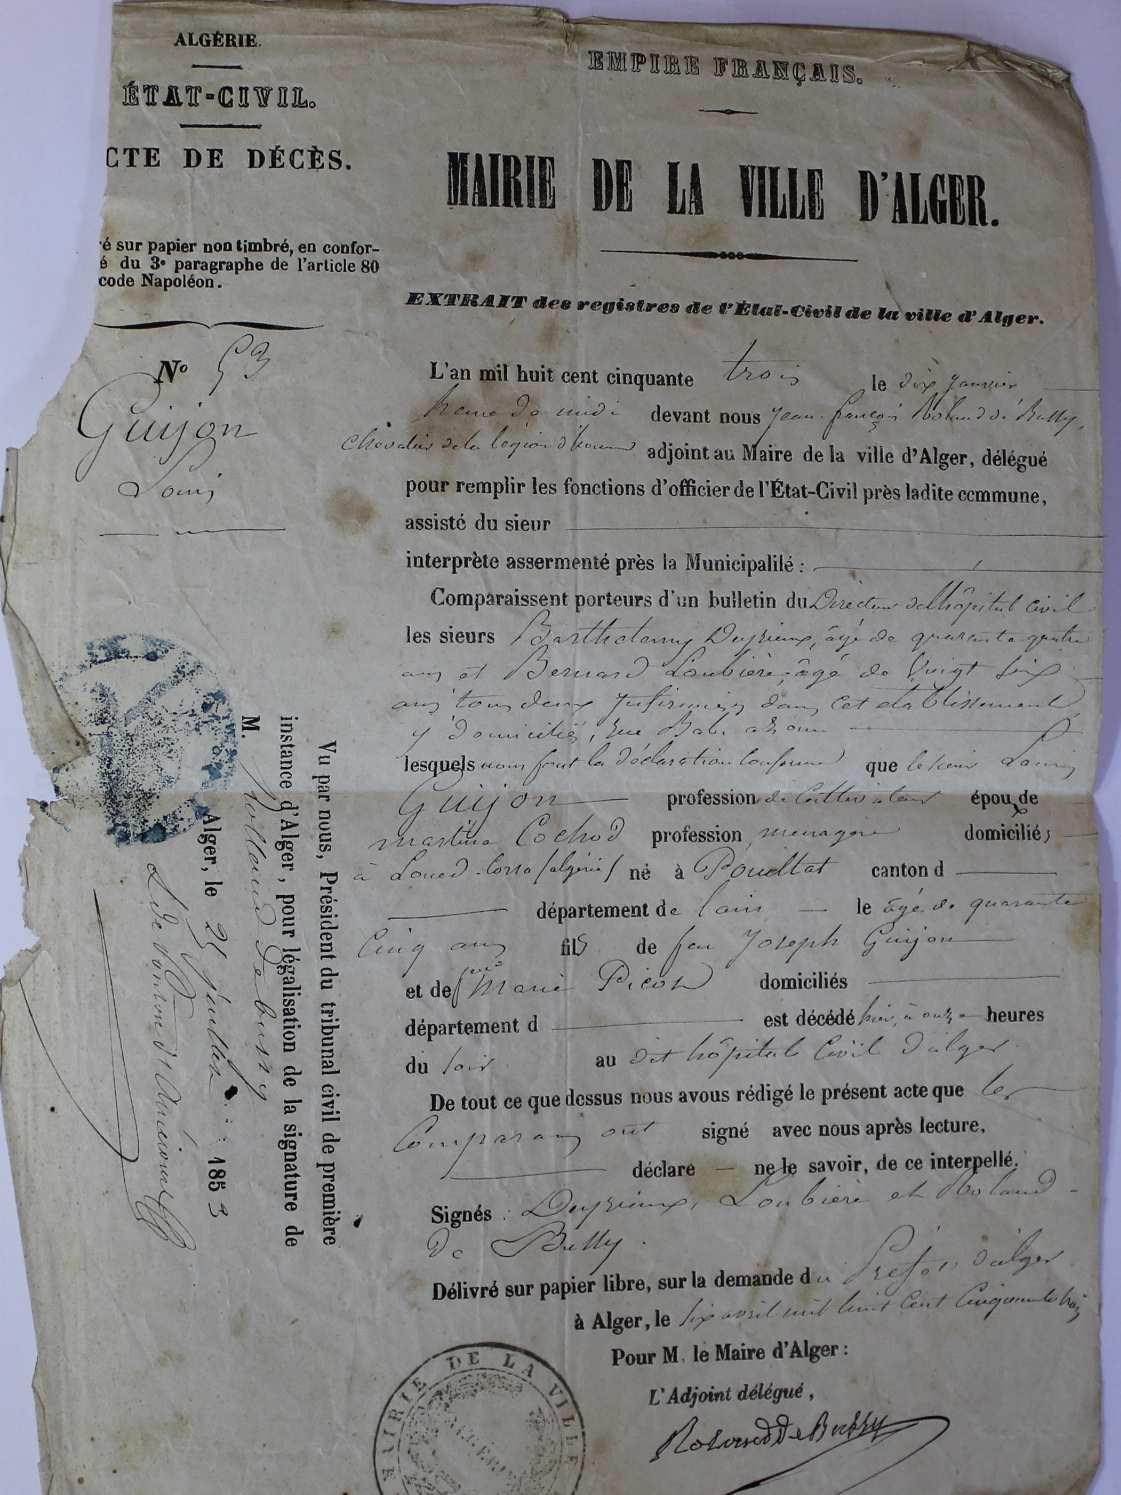 ALGÉRIE.
ÉTAT-CIVIL.
CTE DE DÉCÈS.
ré sur papier non timbré, en confor-
é du 3e paragraphe de l'article 80
code Napoléon.
No 53
Guijon
Louis
EMPIRE FRANÇAIS.
MAIRIE DE LA VILLE D'ALGER.
EXTRAIT des registres de l'État-Civil de la ville d'Alger.
L'an mil huit cent cinquante trois le dix janvier
heure de midi devant nous Jean françois Roland de Bussy,
chevalier de la légion d'honneur adjoint au Maire de la ville d'Alger, délégué
pour remplir les fonctions d'officier de l'État-Civil près ladite commune,
assisté du sieur
interprète assermenté près la Municipalité :
Comparaissent porteurs d'un bulletin du Directeur de l'hôpital civil
les sieurs Barthelemy âgé de quarante quatre
ans et Bernard Loubière âgé de vingt six
ans tous deux infirmiers dans cet établissement
y domiciliés, rue Bab azoun
lesquels nous font la déclaration conforme que le sieur Louis
Guijon profession de Cultivateur époux de
martine Cochod profession menagere domiciliés
à Loued-Corso (algérie) né à Poulliat canton d
département de l'ain le âgé de quarante
cinq ans fils de feu Joseph Guijon
et de Marie Picod domiciliés
département d est décédé hier, à onze heures
du soir au dit hôpital Civil d'alger
De tout ce que dessus nous avons rédigé le présent acte que les
Comparans ont signé avec nous après lecture,
déclare ne le savoir, de ce interpellé.
Signés : Loubière et Roland
De Bussy.
Délivré sur papier libre, sur la demande du Préfet d'alger
à Alger, le six avril mil huit cent cinquante trois
Pour M. le Maire d'Alger :
L'Adjoint délégué,
Roland De Bussy
MAIRIE DE LA VILLE
ALGÉRIE
Vu par nous, Président du tribunal civil de première
instance d'Alger, pour légalisation de la signature de
M. Rolland de bussy
Alger, le 25 juillet 1853